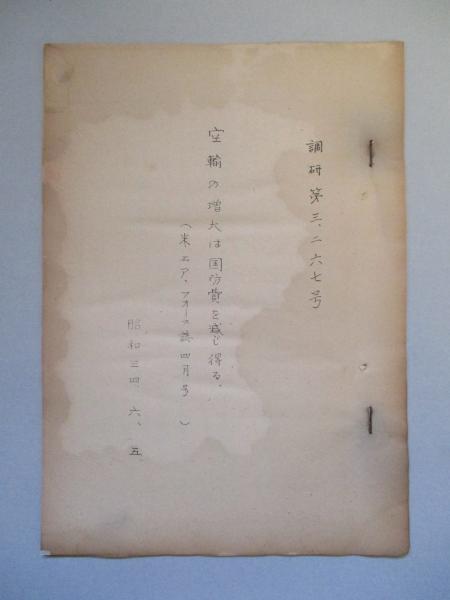 調研第三、二六七号
空輸の増大は国防費を減じ得る。
（米エア・フォース誌四月号）
昭和三四、六、五、